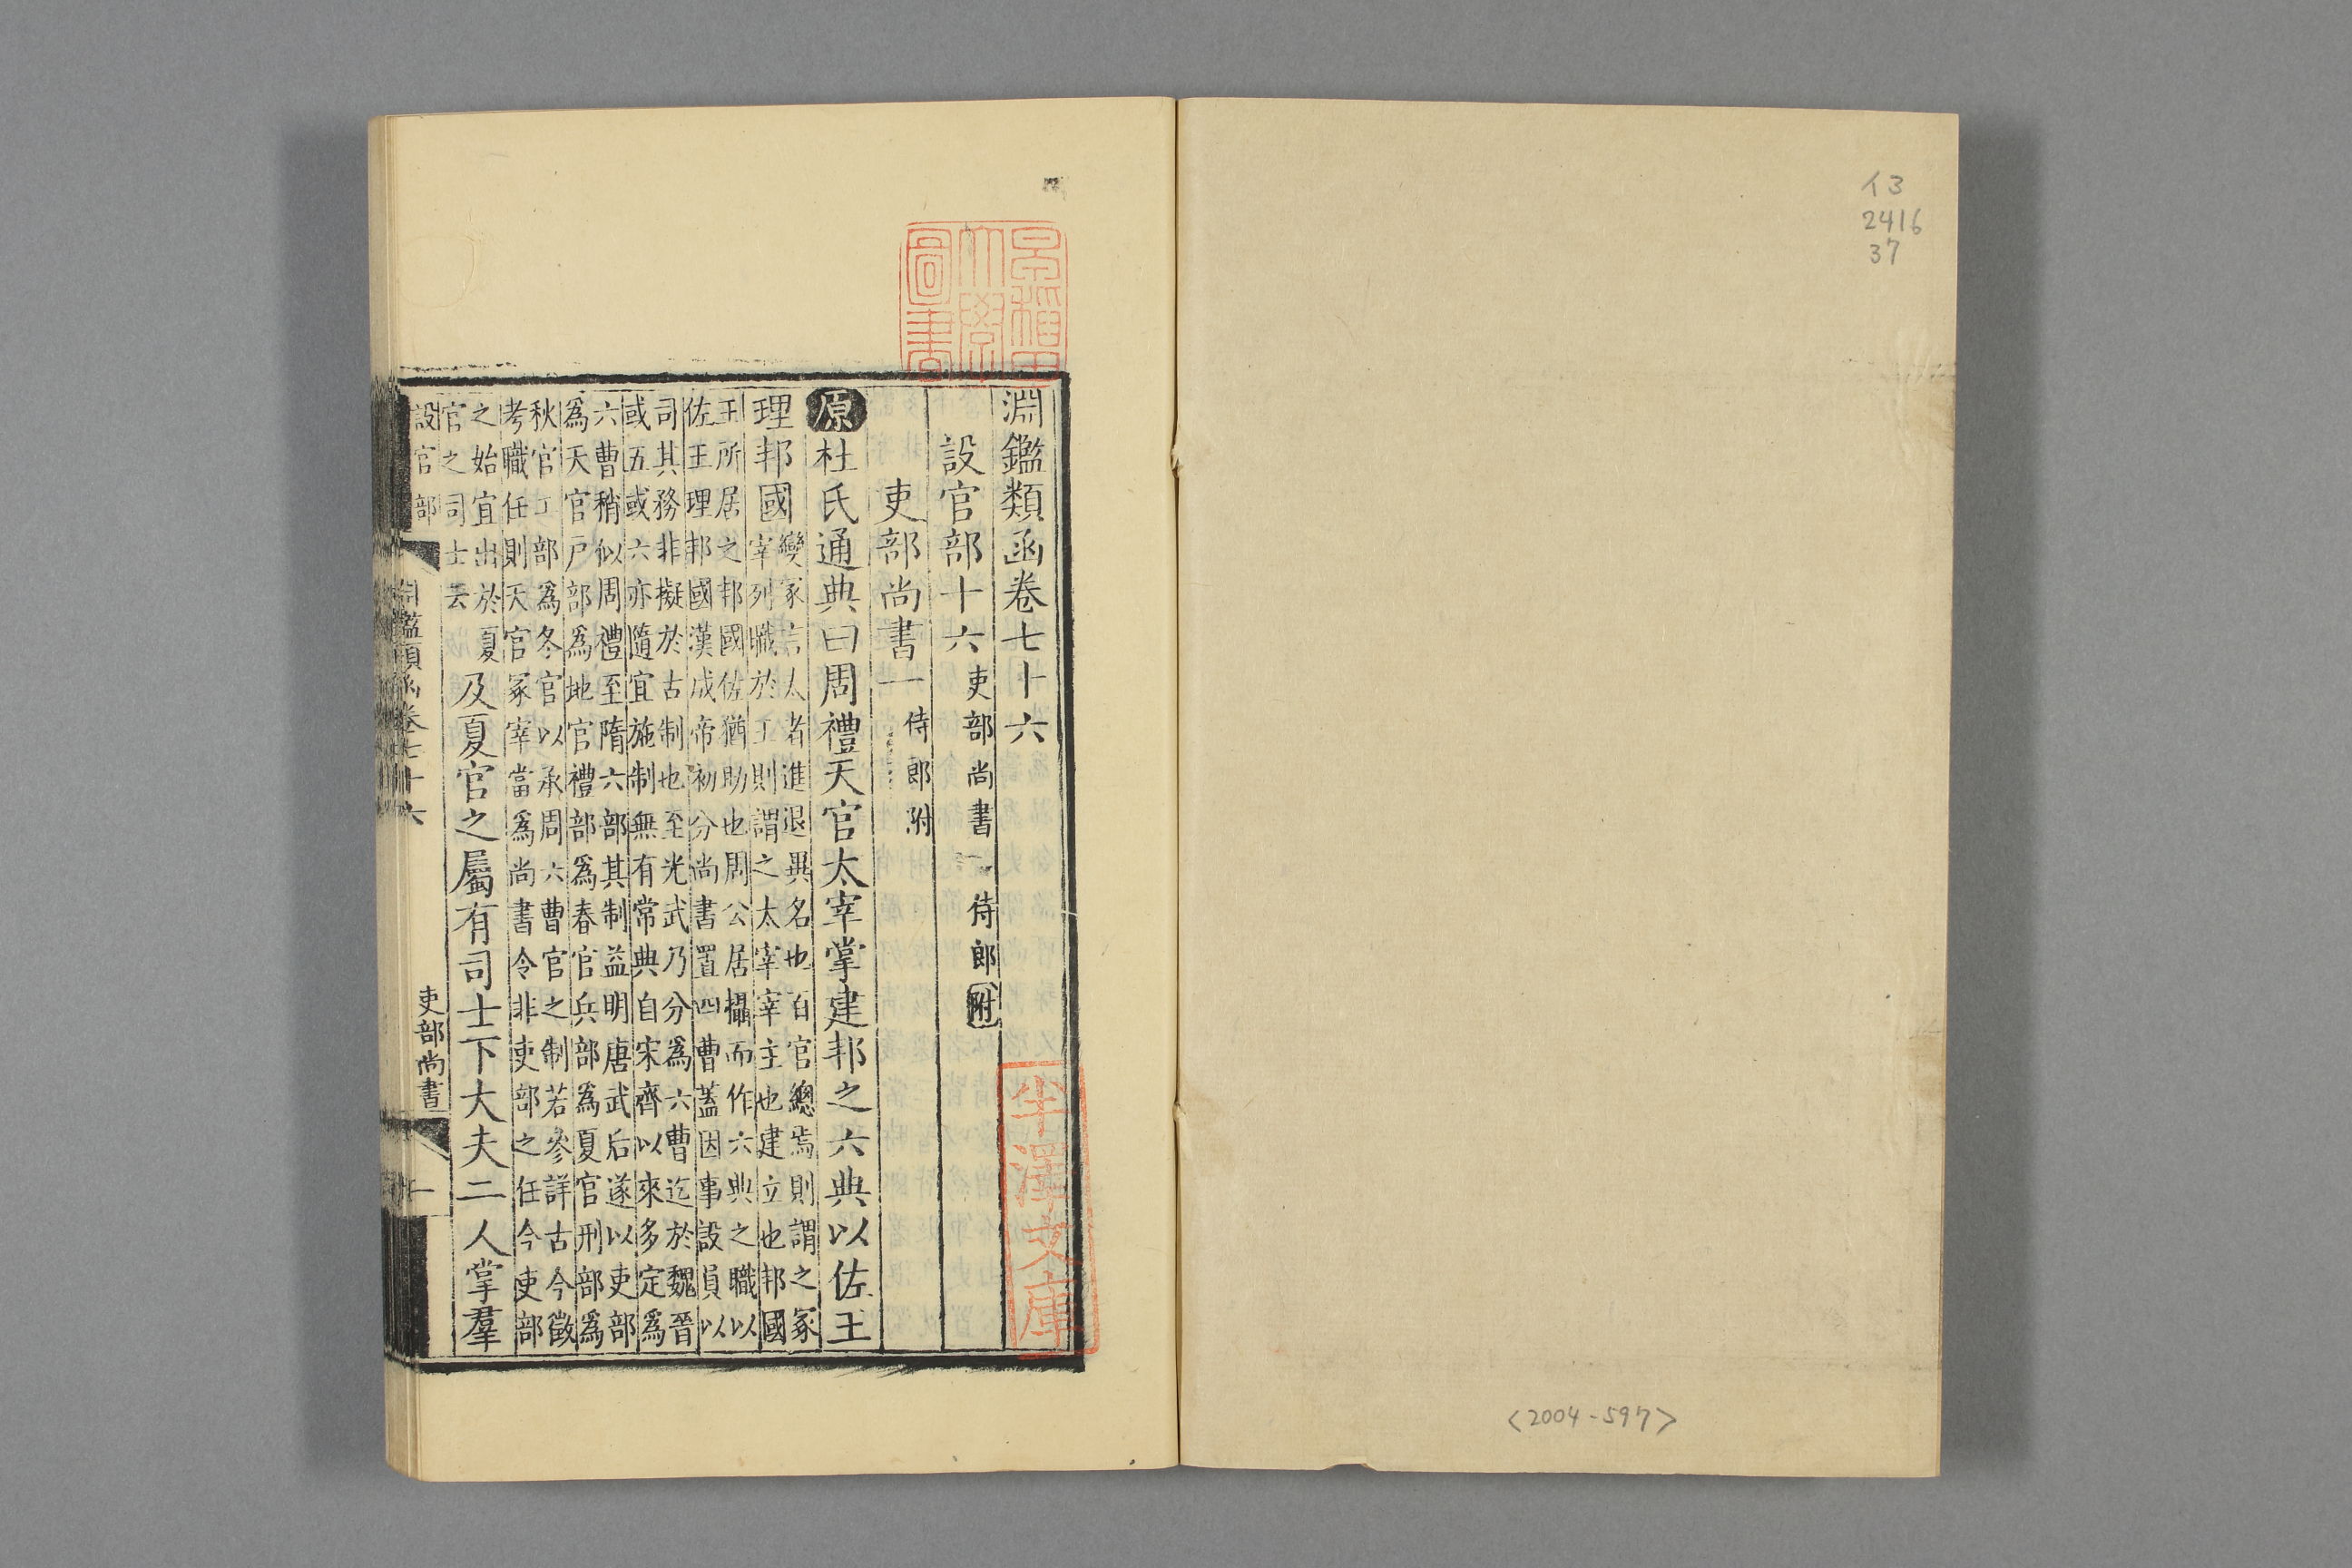 イ3
2416
37
〈2004-597〉
早稲田大學圖書
淵鑑類函卷七十六
設官部十六 吏部尚書一 侍郎附
吏部尚書一 侍郎附
原 杜氏通典曰周禮天官太宰掌建邦之六典以佐王
理邦國
變冢言太者進退異名也百官總焉則謂之冢
宰列職於王則謂之太宰宰主也建立也邦國
王所居之邦國佐猶助也周公居攝而作六典之職以
佐王理邦國漢成帝初分尚書置四曹蓋因事設員以
司其務非擬於古制也至光武乃分為六曹迄於魏晉
或五或六亦隨宜施制無有常典自宋齊以來多定為
六曹稍似周禮至隋六部其制益明唐武后遂以吏部
為天官戶部為地官禮部為春官兵部為夏官刑部為
秋官工部為冬官以承周六曹官之制若參詳古今徵
考職任則天官冢宰當為尚書令非吏部之任今吏部
之始宜出於夏
官之司士云
及夏官之屬有司士下大夫二人掌羣
設官部
淵鑑類函卷七十六
吏部尚書一
一
半澤文庫